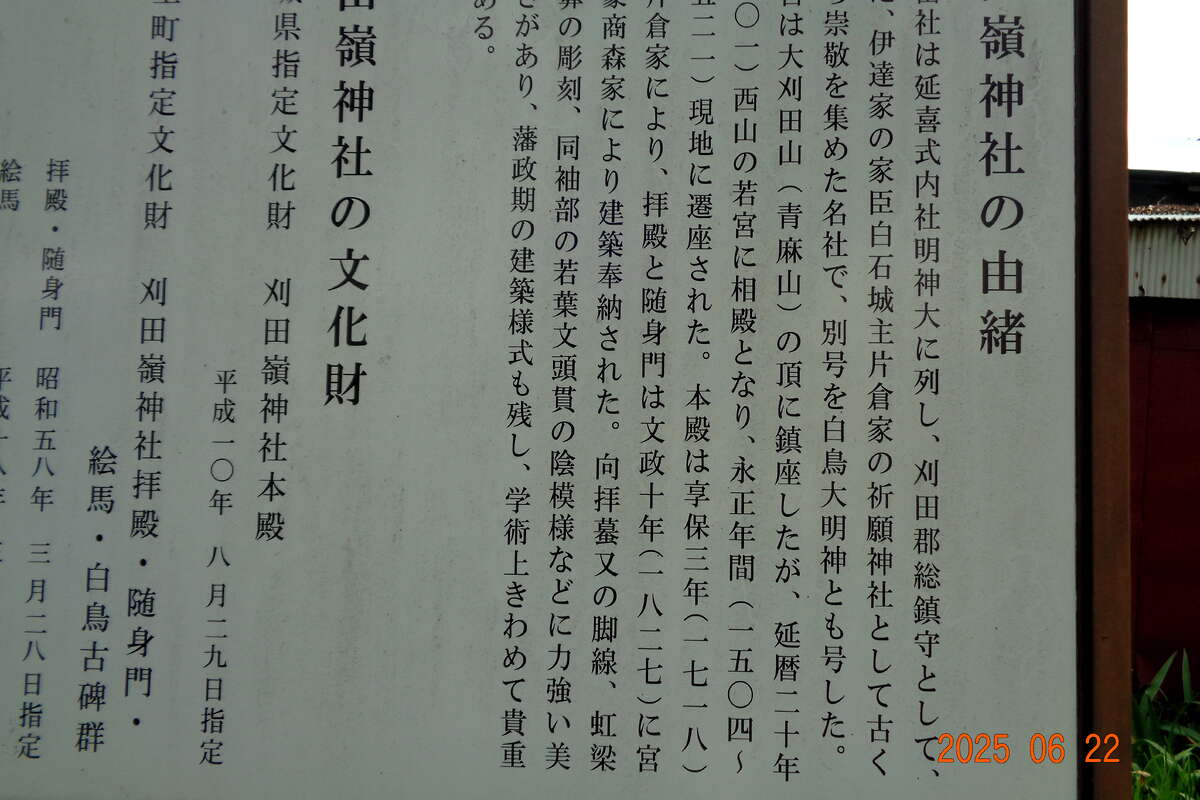 嶺神社の由緒
社は延喜式内社明神大に列し、刈田郡総鎮守として、
、伊達家の家臣白石城主片倉家の祈願神社として古く
崇敬を集めた名社で、別号を白鳥大明神とも号した。
は大刈田山（青麻山）の頂に鎮座したが、延暦二十年
〇一）西山の若宮に相殿となり、永正年間（一五〇四〜
五二一）現地に遷座された。本殿は享保三年（一七一八）
片倉家により、拝殿と随身門は文政十年（一八二七）に宮
家商森家により建築奉納された。向拝蟇又の脚線、虹梁
の彫刻、同袖部の若葉文頭貫の陰模様などに力強い美
さがあり、藩政期の建築様式も残し、学術上きわめて貴重
ある。
田嶺神社の文化財
県指定文化財 刈田嶺神社本殿
平成一〇年 八月二九日指定
町指定文化財 刈田嶺神社拝殿・随身門・
絵馬・白鳥古碑群
拝殿・随身門 昭和五八年 三月二八日指定
絵馬
2025 06 22